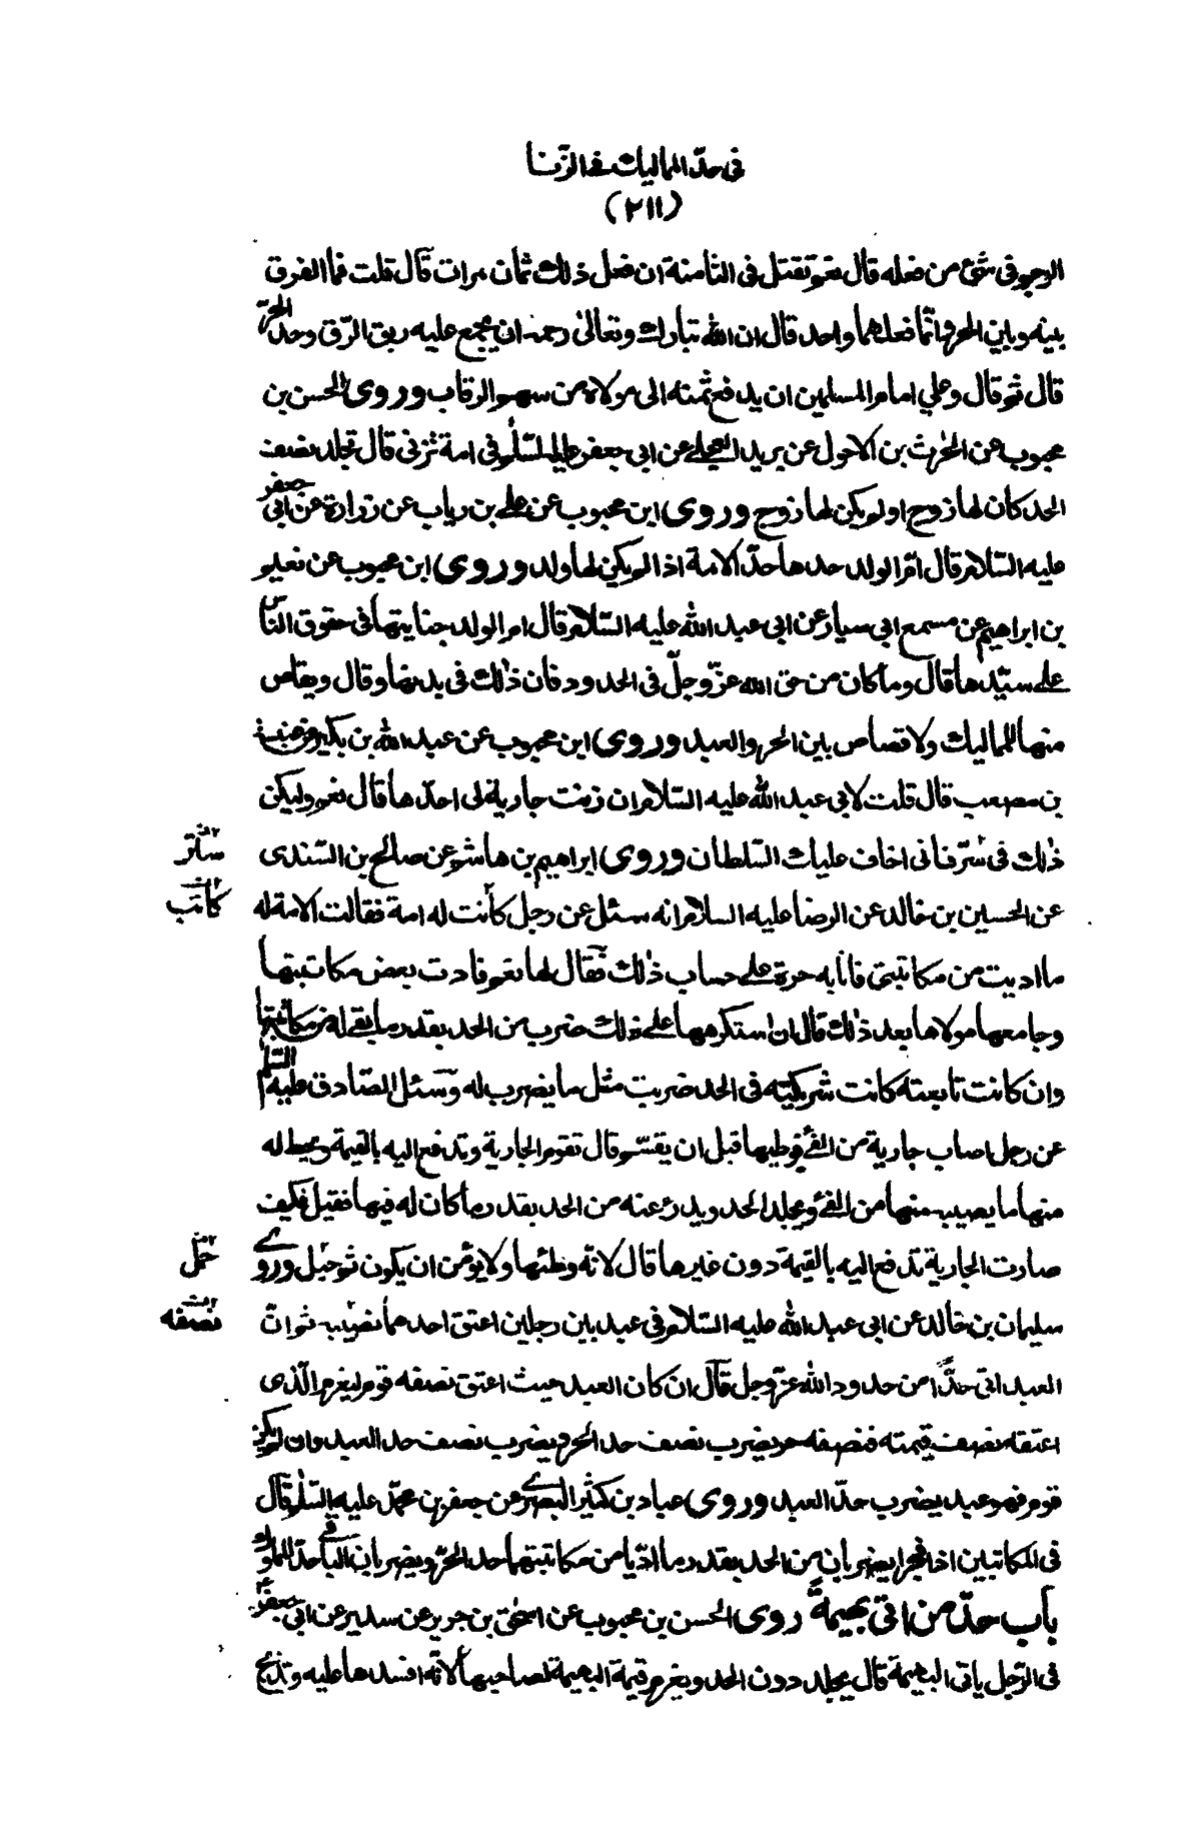 فی حدّ المماليك فے الزّنا
(٢١١)
الرجم فی شئ من فعله قال نعم تقتل فی الثامنة ان فعل ذلك ثمان مرات قال قلت فما الفرق
بينه وبين الحر وانّما فعلهما واحد قال ان الله تبارك وتعالىٰ رحمه ان يجمع عليه ربق الرّق وحد الحرّ
قال ثم قال وعلی امام المسلمين ان يدفع ثمنه الى مولاه من سهم الرقاب وروى الحسن بن
محبوب عن الحٰرث بن الاحول عن بريد العجلے عن ابی جعفر عليه السّلٰم فی امة تزنی قال تجلد نصف
الحد كان لها زوج او لم يكن لها زوج وروى ابن محبوب عن علے بن رياب عن زرارة عن ابی جعفر
عليه السّلام قال امّ الولد حدها حدّ الامة اذا لم يكن لها ولد وروى ابن محبوب عن نعيم
بن ابراهيم عن مسمع ابی سيار عن ابی عبد الله عليه السّلام قال ام الولد جنايتها فی حقوق النّاس
علے سيّدها قال وما كان من حق الله عزّ وجلّ فی الحدود فان ذٰلك فی بدنها وقال ويقاص
منها للمماليك ولا قصاص بين الحر والعبد وروى ابن محبوب عن عبد الله بن بكير عن عنبسة
بن مصعب قال قلت لابی عبد الله عليه السّلام ان زنت جارية لی احدّها قال نعم وليكن
ذٰلك فی سرّ فانی اخاف عليك السّلطان وروى ابراهيم بن هاشم عن صالح بن السّندی
ستر
عن الحسين بن خالد عن الرضا عليه السلام انه سئل عن رجل كانت له امة فقالت الامة له
كاتب
ما اديت من مكاتبتی فانا به حرة علے حساب ذٰلك فقال لها نعم فادت بعض مكاتبتها
وجامعها مولاها بعد ذٰلك قال ان استكرهها علے ذلك ضرب من الحد بقدر ما بقے له من مكاتبتها
وان كانت تابعته كانت شريكته فی الحد ضربت مثل ما يضرب له وسئل الصّادق عليه السّلٰم
عن رجل اصاب جارية من الفئ فوطيها قبل ان يقسّم قال تقوم الجارية وتدفع اليه بالقيمة ويحط له
منها ما يصيبه منها من الفئ ويجلد الحد ويدرء عنه من الحد بقدر ما كان له فيها فقيل فكيف
صارت الجارية تدفع اليه بالقيمة دون غيرها قال لانّه وطئها ولا يؤمن ان يكون ثم حبل وروے
سليمان بن خالد عن ابی عبد الله عليه السّلام فی عبد بين رجلين اعتق احدهما نصيبه ثم انّ
نصفه
العبد اتی حدًّا من حدود الله عزّ وجل قال ان كان العبد حيث اعتق نصفه قوم ليغرم الّذی
اعتقه نصف قيمته فنصفه حر يضرب نصف حد الحر ويضرب نصف حد العبد وان لم يكن
قوم فهو عبد يضرب حدّ العبد وروى عباد بن كثير البصرے عن جعفر بن محمّد عليه السّلٰم قال
فی المكاتبين اذا فجرا يضربان من الحد بقدر ما ادّيا من مكاتبتهما حد الحرّ ويضربان الباقے حدّ المملوك
باب حدّ من اتٰی بهيمةً روى الحسن بن محبوب عن اسحٰق بن جرير عن سدير عن ابی جعفرؑ
فی الرّجل ياتی البهيمة قال يجلد دون الحد ويغرم قيمة البهيمة لصاحبها لانّه افسدها عليه وتذبح